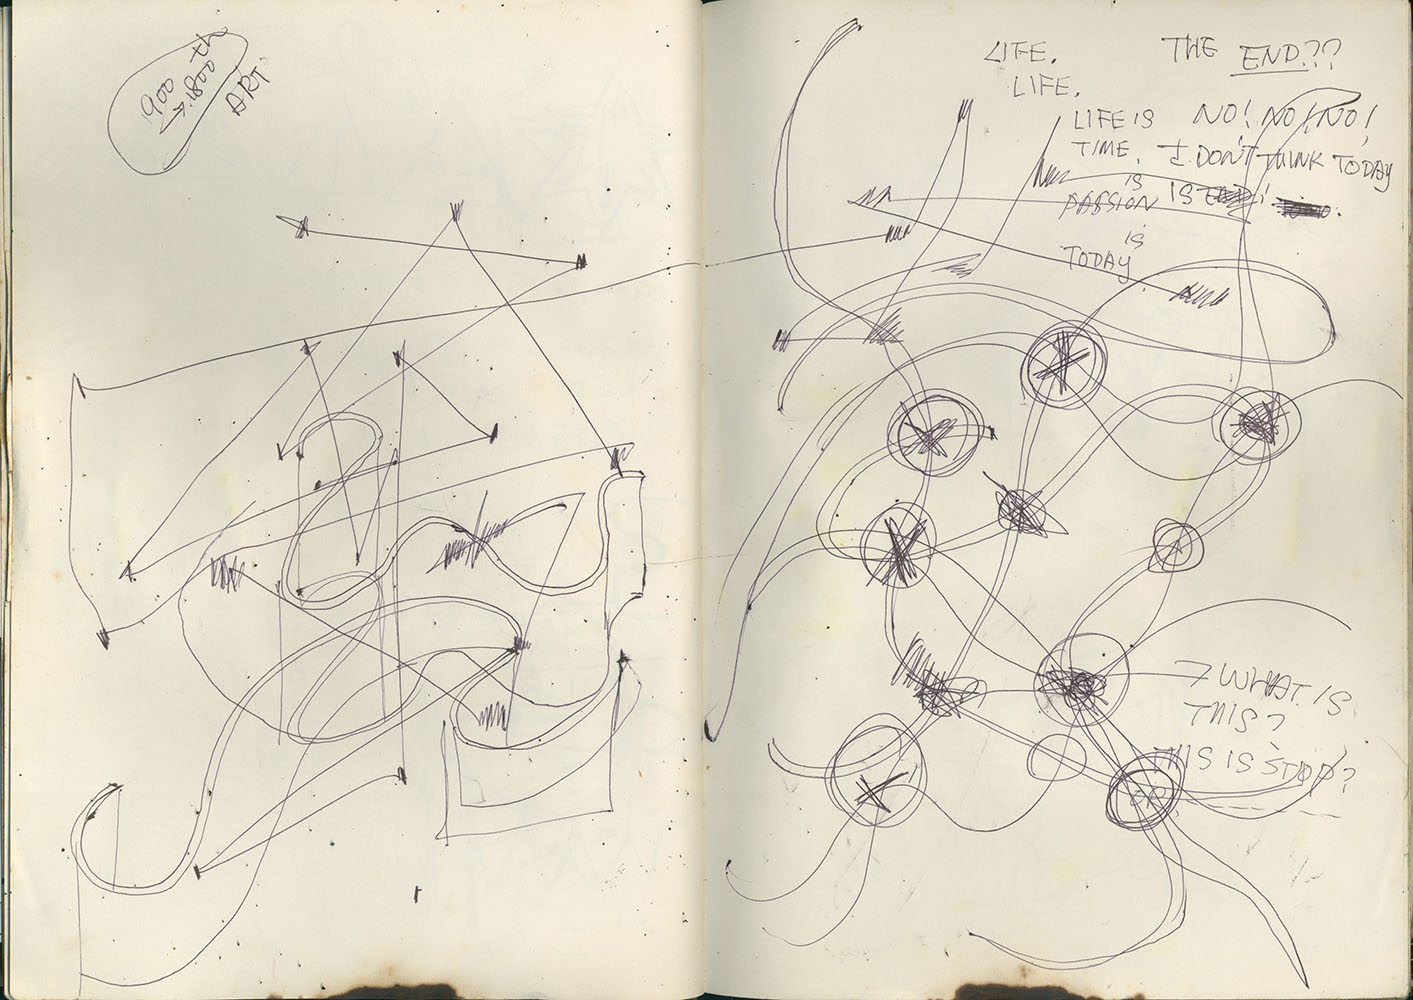 1900
→ 1800 th
ART.
LIFE.
LIFE.
LIFE IS
TIME.
IS
PASSION
IS
TODAY
THE END??
NO! NO! NO!
I DON'T THINK TODAY
IS END!
→ WHAT IS
THIS?
THIS IS STOP?